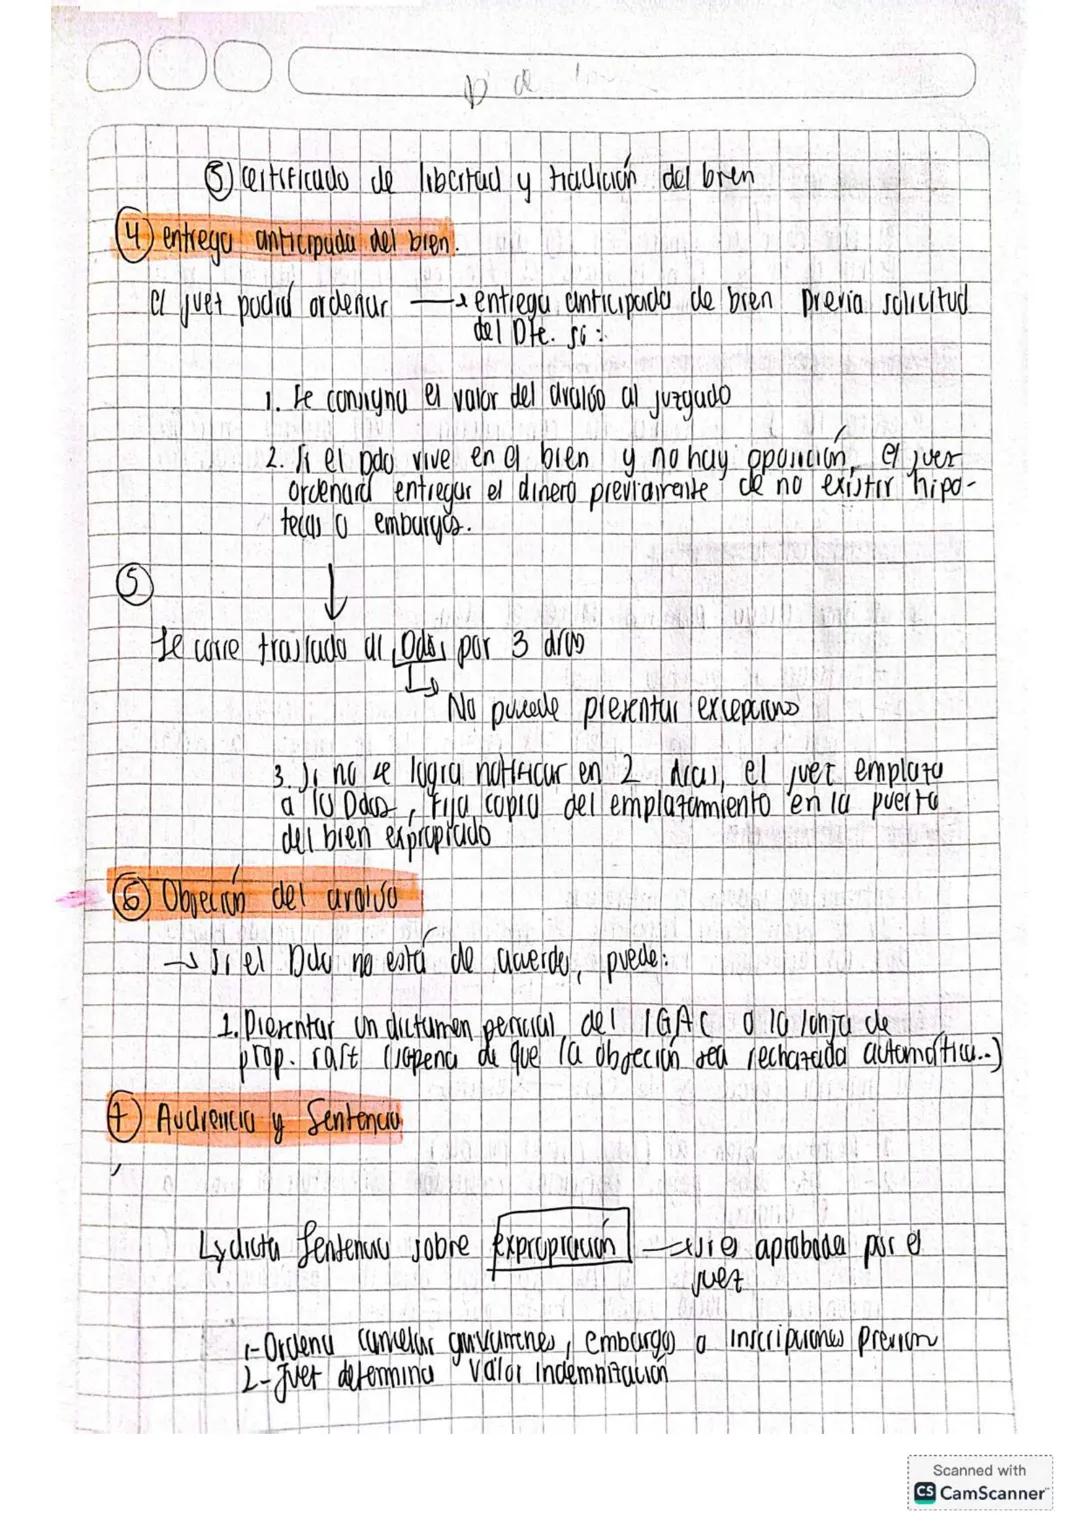 ③ certificado de libertad y tradición del bien
④ entrega anticipada del bien.
El juez podrá ordenar → entrega anticipada de bien previa solicitud
del Dte. si:
1. Se consigna el valor del avalúo al juzgado
2. Si el Ddo vive en el bien y no hay oposición, el juez
ordenará entregar el dinero previamente de no existir hipo-
tecas o embargos.
⑤
Se corre traslado al Ddo, por 3 días
No puede presentar excepciones
3. Si no se logra notificar en 2 días, el juez emplaza
a lo Ddos, fija copia del emplazamiento en la puerta
del bien expropiado
⑥ Objeción del avalúo
→ Si el Ddo no está de acuerdo, puede:
1. Presentar un dictamen pericial del IGAC o la lonja de
prop. raíz (sopena de que la objeción sea rechazada automática..)
⑦ Audiencia y Sentencia
↳ dicta Sentencia sobre expropiación → si es aprobada por el
juez
1- Ordena cancelar gravamenes, embargos o inscripciones previas
2- Juez determina valor indemnización
Scanned with
CS CamScanner